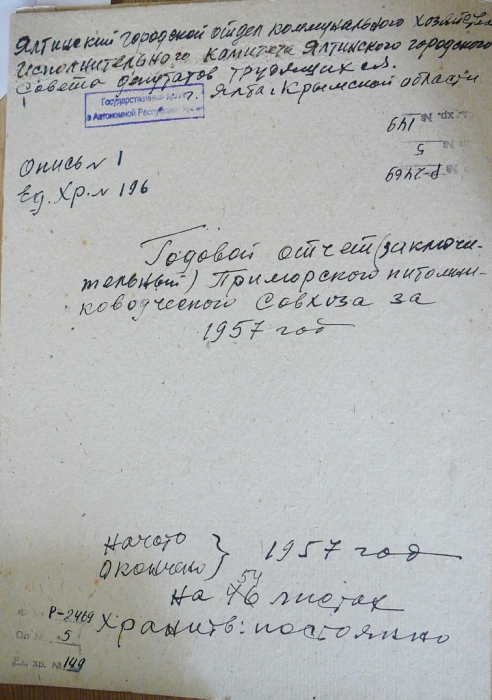 Ялтинский городской отдел коммунального хозяйства
исполнительного камитета Ялтинского городского
Совета депутатов трудящихся.
г. Ялта Крымской области
Государственный архив
в Автономной Республике Крым
Ед. хр. № 149
Оп № 5
Ф № Р-2469
Опись N 1
Ед. Хр. N 196
Годовой отчет (заключи-
тельный) Приморского питомни-
ководческого Совхоза за
1957 год
Начато
Окончено } 1957 год
54
На 46 листах
Хранить: постоянно
Ф № Р-2469
Оп № 5
Ед. хр. № 149